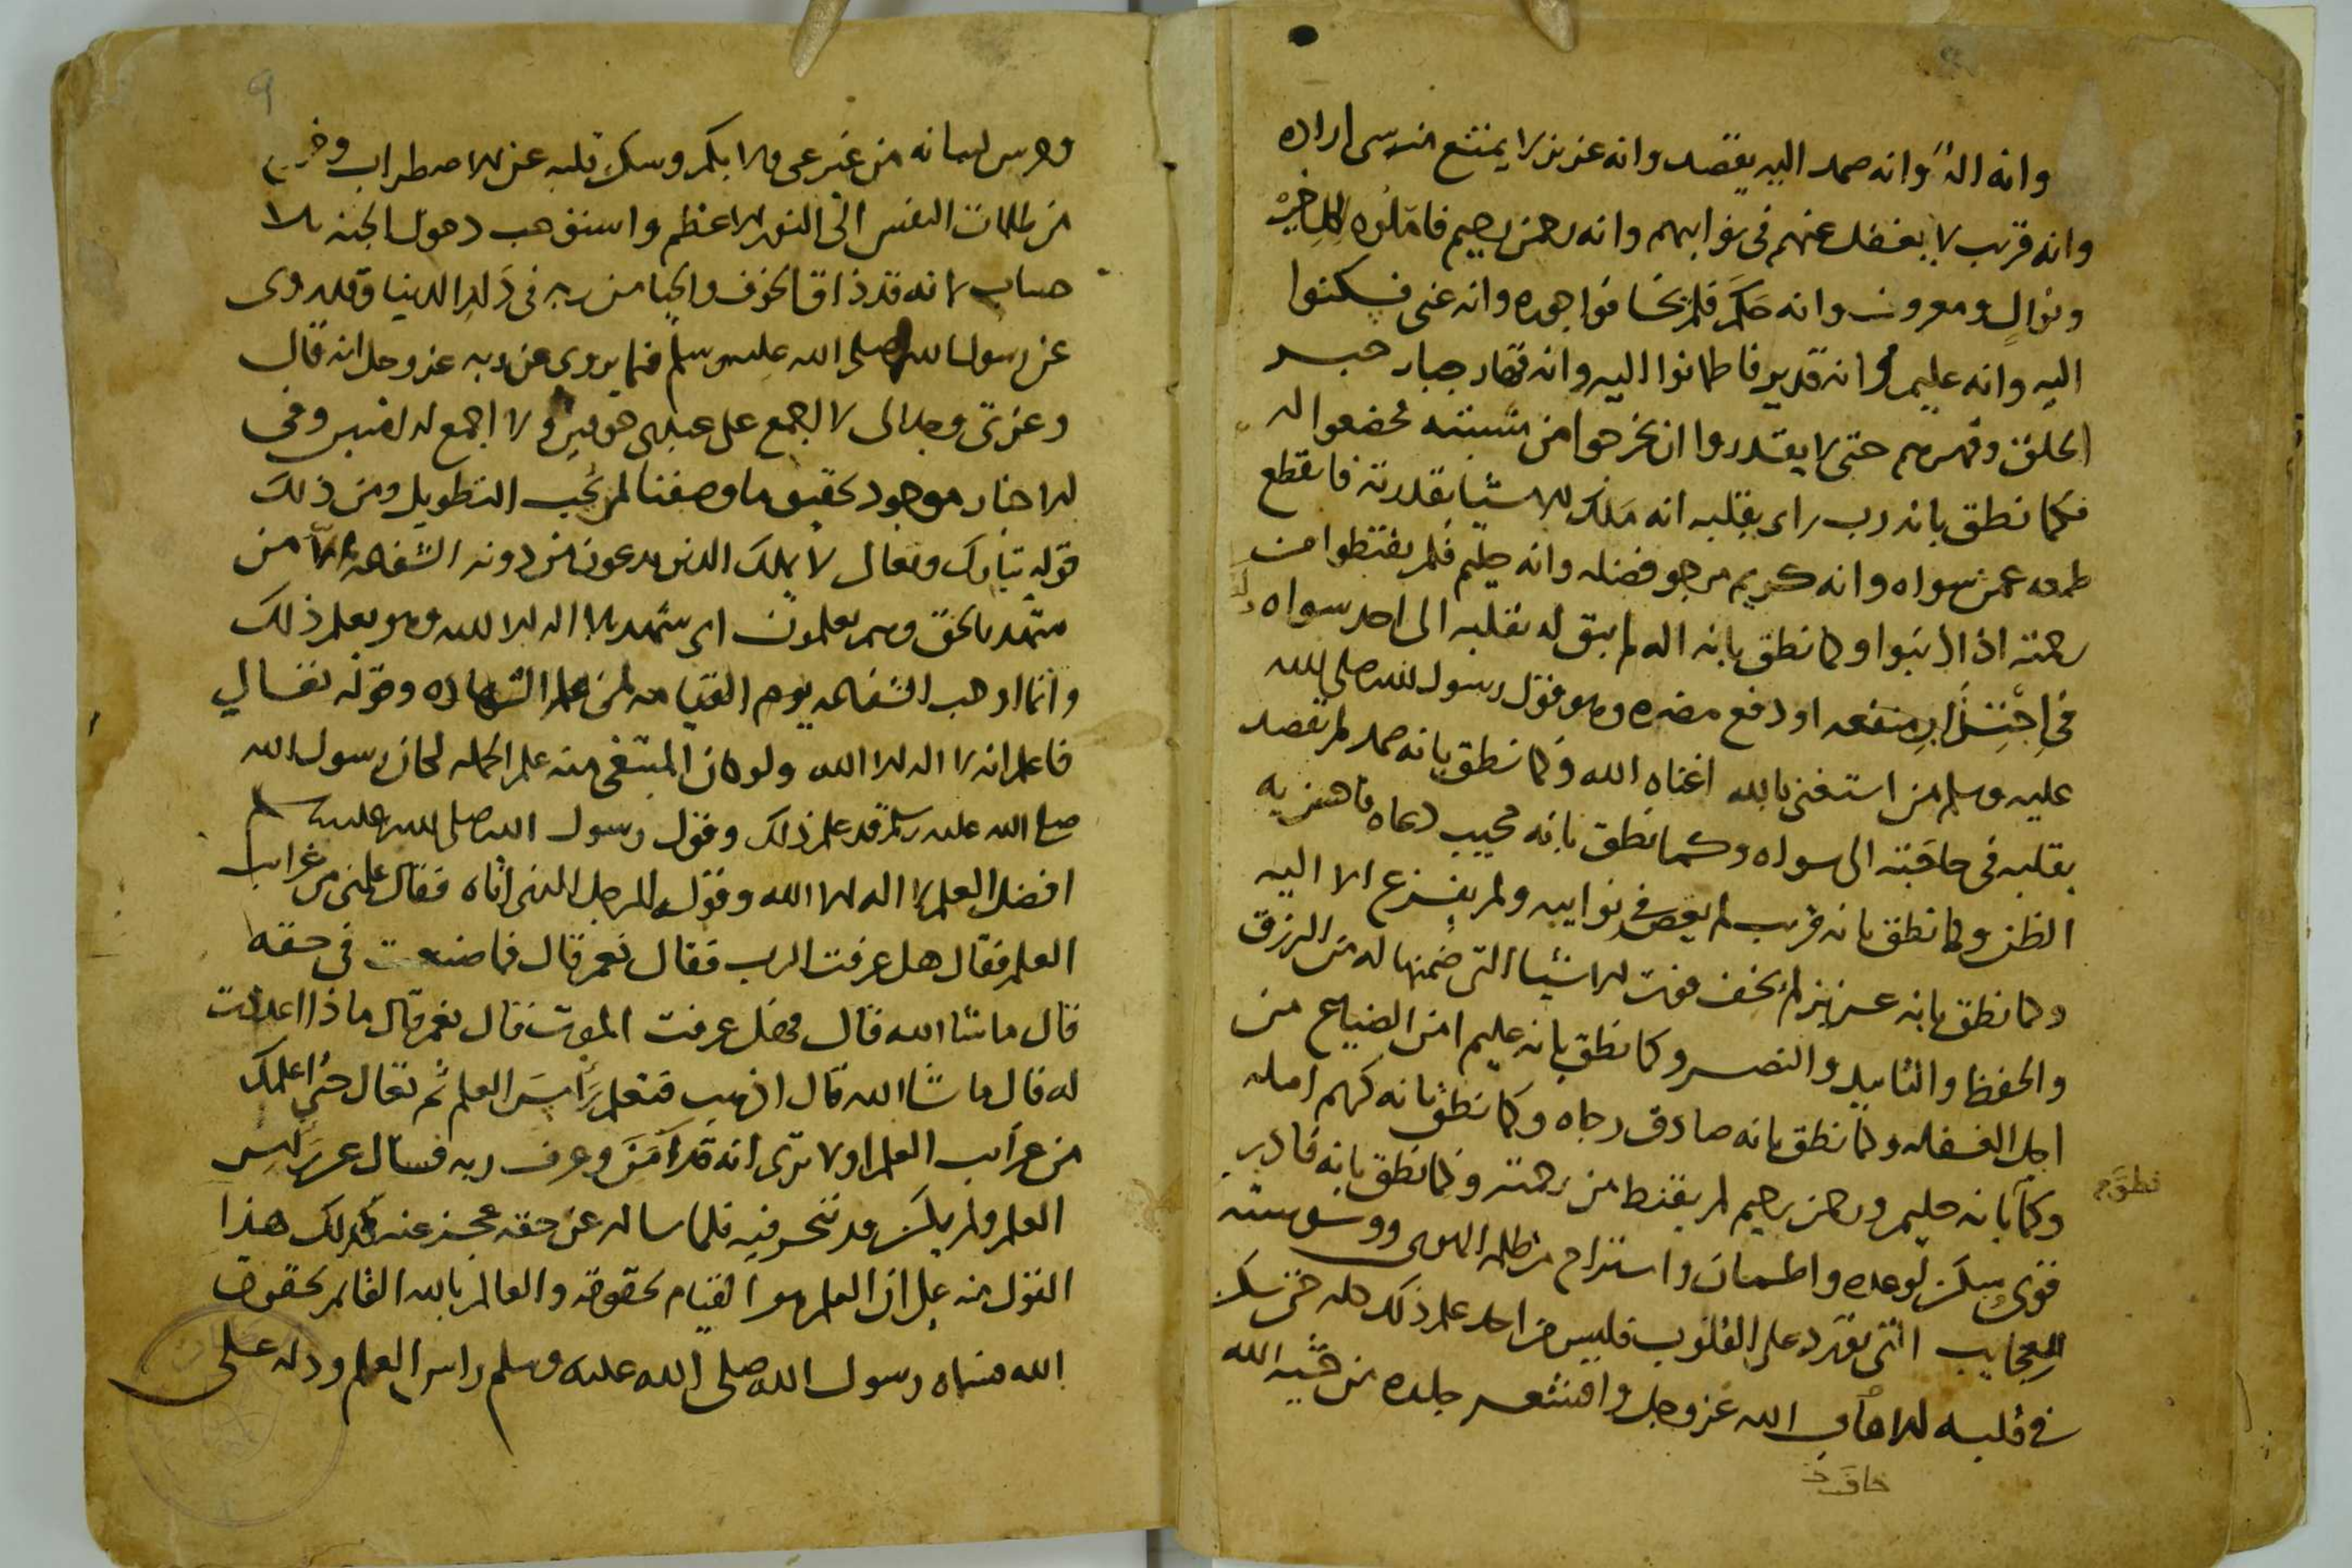 وانه اله وانه صمد اليه يقصد وانه عزيز لا يمتنع منه شى اراده
وانه قريب لا يغفل عنهم فى نوابهم وانه رحمن رحيم فاملوه لكل خير
ونوال ومعروف وانه حكم فلم يخافوا جوره وانه غنى فسكنوا
اليه وانه عليم وانه قدير فاطمانوا اليه وانه قهار جبار جبر
الخلق وقهرهم حتى لا يقدروا ان يخرجوا من مشيته فخضعوا له
فكما نطق بانه رب راى بقلبه انه ملك الاشيا بقدرته فانقطع
طمعه عمن سواه وانه كريم يرجو فضله وانه حليم فلم يقنطوا من
رحمته اذا اذنبوا وكما نطق بانه اله لم يبق له بقلبه الى احد سواه
فى اجتلاب منفعه او دفع مضره وهو قول رسول الله صلى الله
عليه وسلم من استغنى بالله اغناه الله وكما نطق بانه صمد لم يقصد
بقلبه فى حاجته الى سواه وكما نطق بانه مجيب دعاه فاحسن به
الظن وكما نطق بانه قريب لم يعص فى نوايبه ولم يفزع الا اليه
وكما نطق بانه عزيز لم يخف فوت الاشيا التى ضمنها له من الرزق
والحفظ والتاييد والنصر وكما نطق بانه عليم امن الضياع من
اجل الغفله وكما نطق بانه صادق رجاه وكما نطق بانه كريم امله
وكما بانه حليم ورحمن رحيم لم يقنط من رحمته وكما نطق بانه قادر
نطق
قوى سكن لوعده واطمان واستراح من ظلمه الهوى ووسوسته
العجايب التى تورد على القلوب فليس من احد علم ذلك كله حتى سكن
فى قلبه الا خاف الله عز وجل واقشعر جلده من خشيه الله
خاف
٩
وخرس لسانه من غير عى ولا بكم وسكن قلبه عن الاضطراب وخرج
من ظلمات النفس الى النور الاعظم واستوجب دخول الجنه بلا
حساب لانه قد ذاق الخوف والحيا من ربه فى دار الدنيا وقد روى
عن رسول الله صلى الله عليه وسلم فيما يروى عن ربه عز وجل انه قال
وعزتى وجلالى لا اجمع على عبدى خوفين ولا اجمع له امنين وفى
الاخبار موجود تحقيق ما وصفنا لم نحب التطويل ومن ذلك
قوله تبارك وتعالى لا يملك الذين يدعون من دونه الشفاعه الا من
شهد بالحق وهم يعلمون اى شهد بلا اله الا الله وهو يعلم ذلك
وانما اوجب الشفاعه يوم القيامه لمن علم الشهاده وقوله تعالى
فاعلم انه لا اله الا الله ولو كان المبتغى منه علم الجمله لكان رسول الله
صلى الله عليه وسلم قد علم ذلك وقول رسول الله صلى الله عليه وسلم
افضل العلم لا اله الا الله وقوله للرجل الذى اتاه فقال علمنى من غرايب
العلم فقال هل عرفت الرب فقال نعم قال فما صنعت فى حقه
قال ما شا الله قال فهل عرفت الموت قال نعم قال ماذا اعددت
له قال ما شا الله قال اذهب فتعلم راس العلم ثم تعال حتى اعلمك
من غرايب العلم اولا ترى انه قد امن وعرف ربه فسال عن راس
العلم ولم يكن قد تبحر فيه فلما ساله عن حقه عجز عنه فدلك هذا
القول منه على ان العلم هو القيام بحقوقه والعالم بالله القائم بحقوق
الله فسماه رسول الله صلى الله عليه وسلم راس العلم ودله على